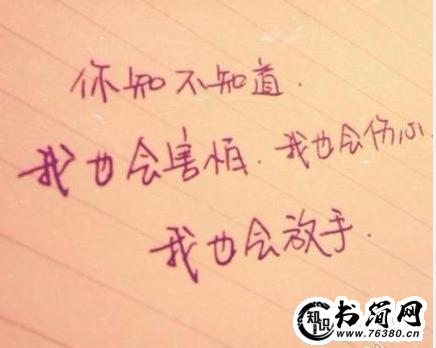 你知不知道.
我也会害怕.我也会伤心
我也会放手.
知识
书简网
www.76380.cn